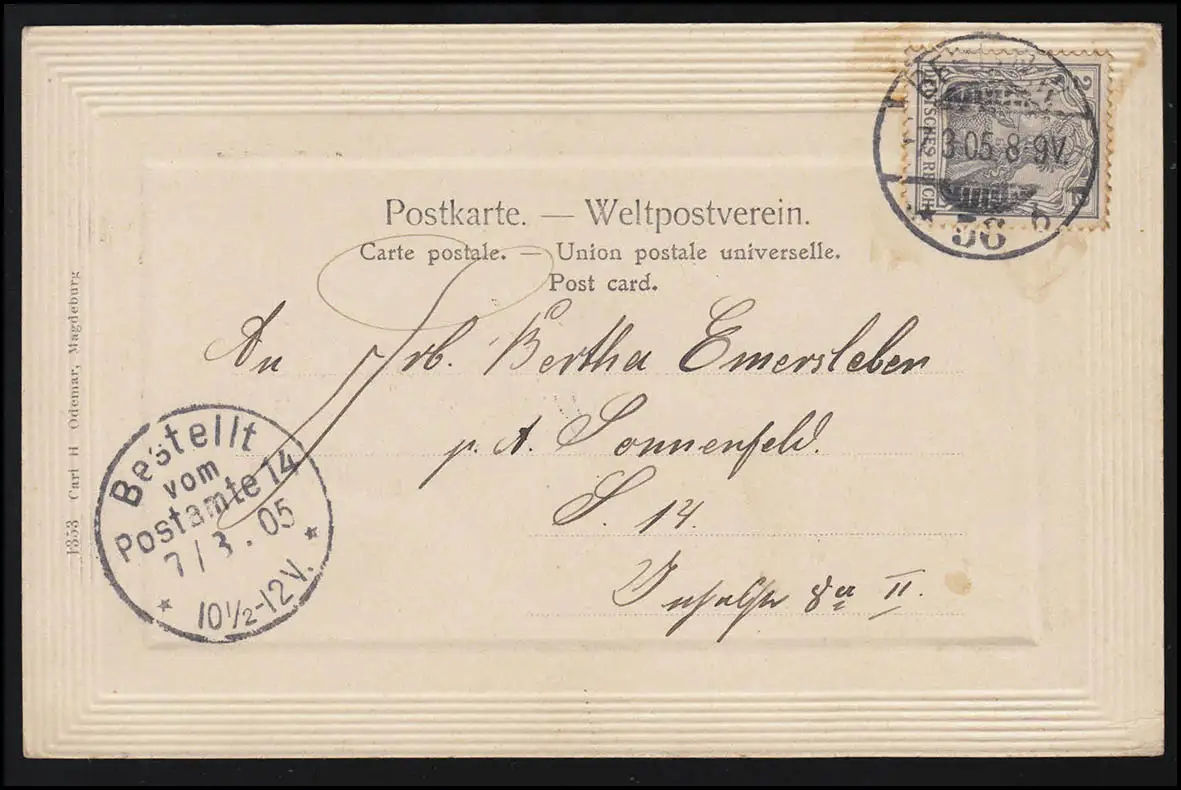 Postkarte. — Weltpostverein.
Carte postale. — Union postale universelle.
Post card.
2
DEUTSCHES REICH
7.3.05.8-9V.
* 56 b
An Frb. Bertha Emersleben
p. A. Sonnenfeld.
S. 14.
8a II.
Bestellt
vom
Postamte 14
7/3.05
* 10½-12V. *
1353 Carl H Odemar, Magdeburg